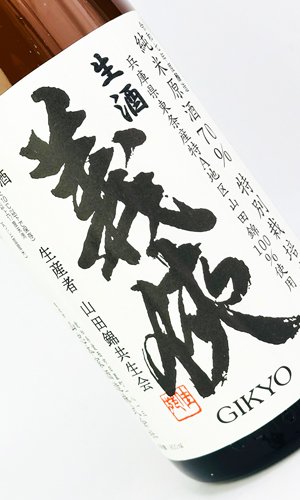 純米原酒70% 特別栽培
兵庫県東条産特A地区山田錦100%使用
生酒
義侠
生産者 山田錦共生会
GIKYO